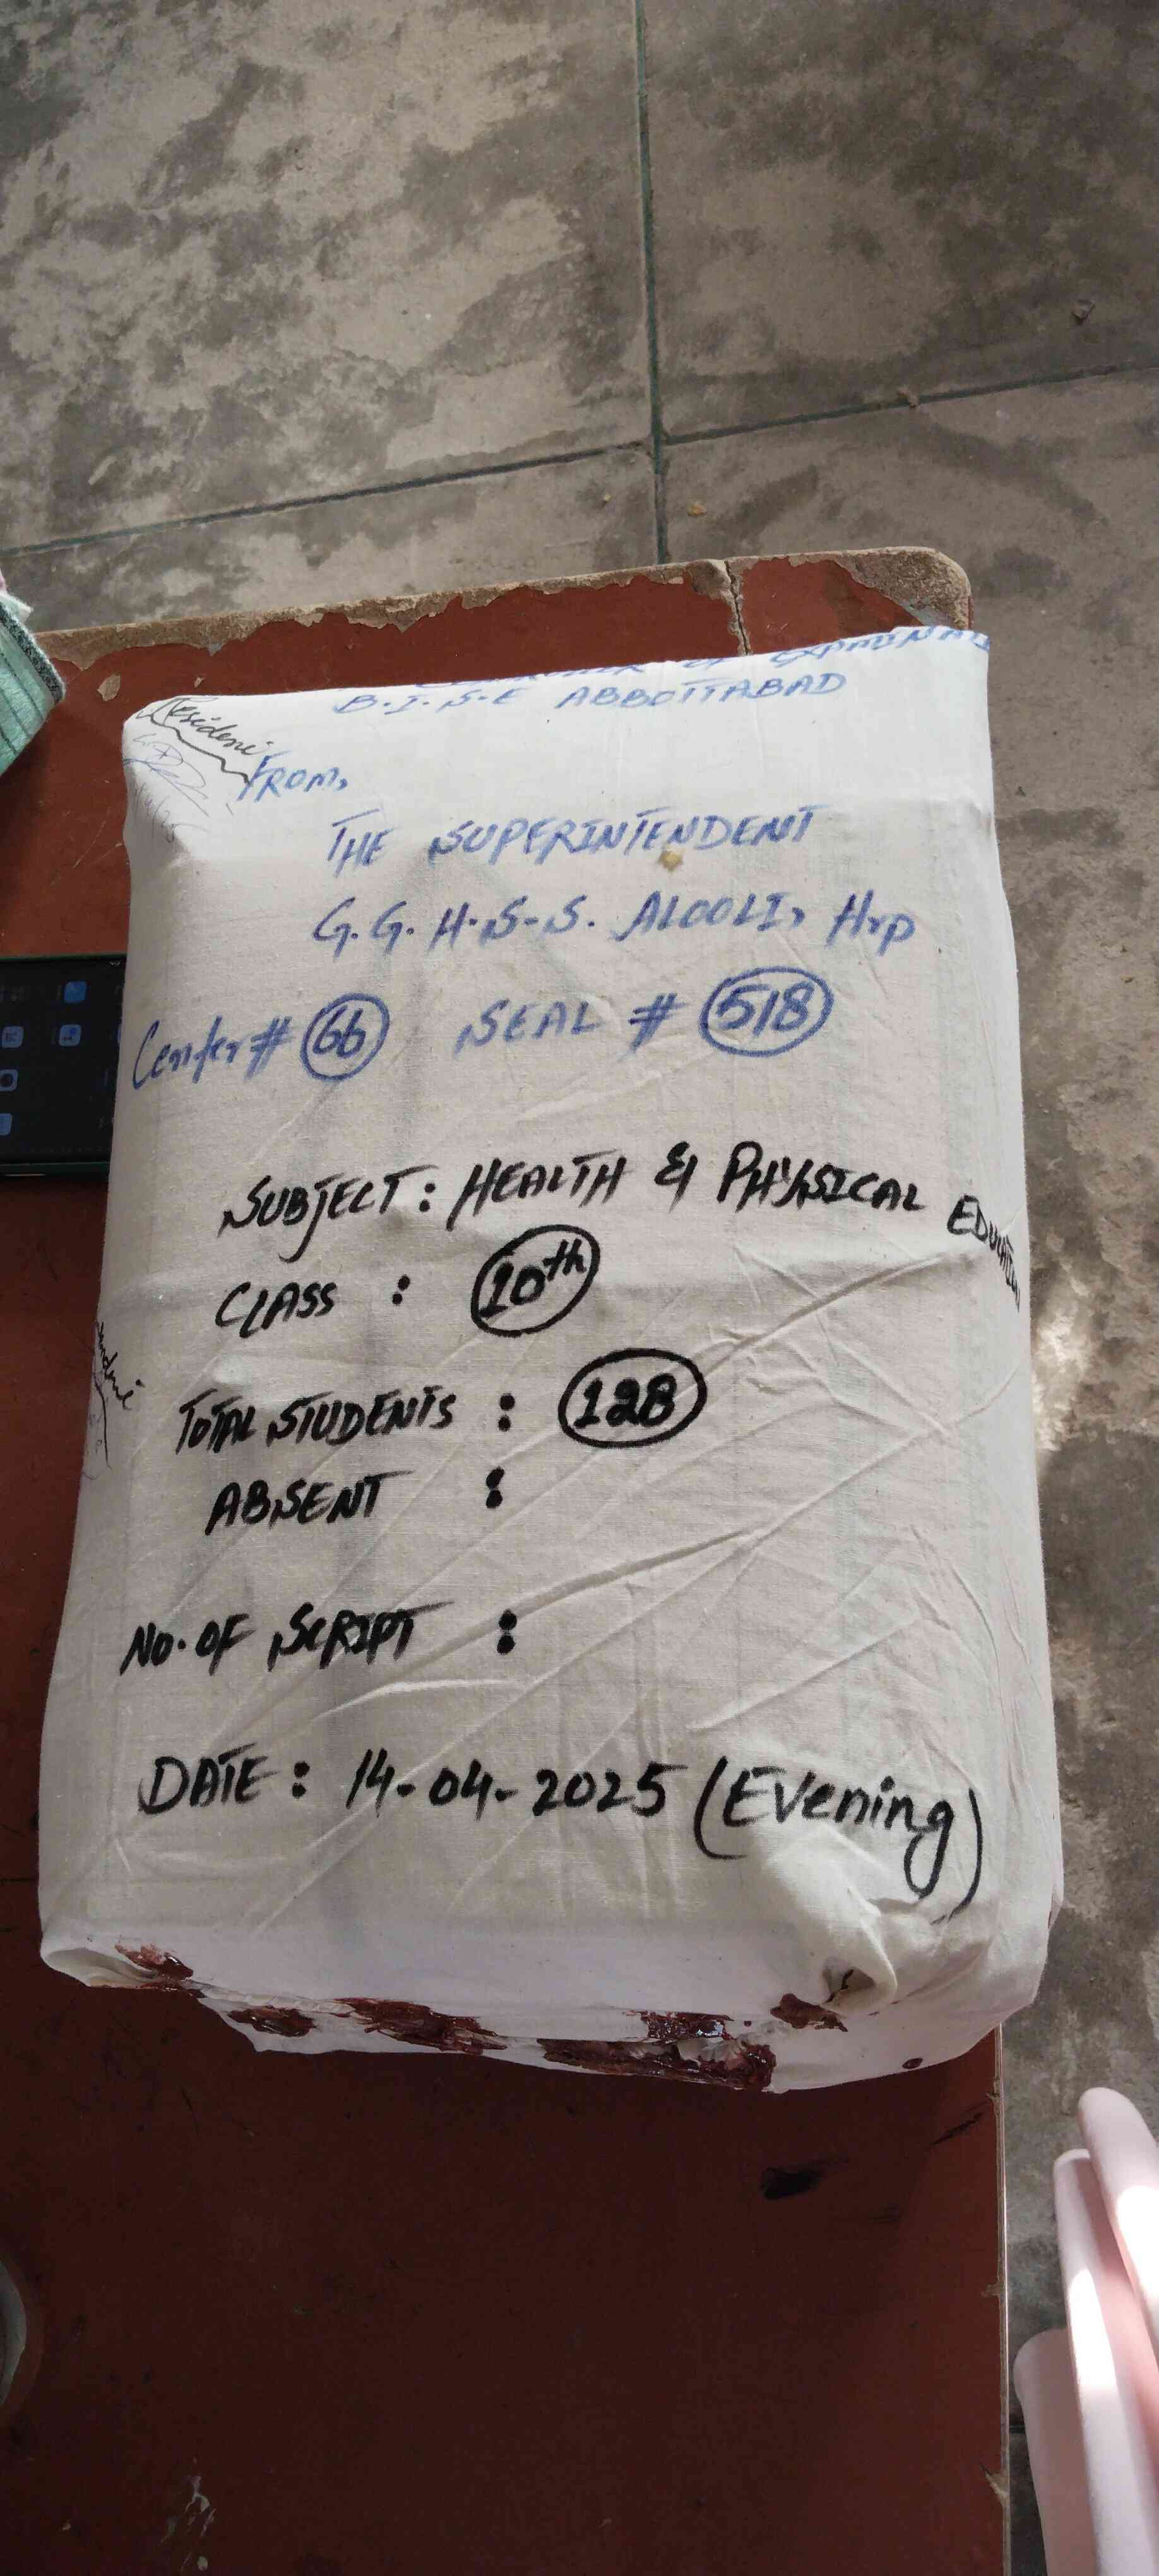 OF EXAMINAT
B.I.S.E ABBOTTABAD
Resident
FROM,
THE SUPERINTENDENT
G.G.H.S.S. ALOOLI, Hrp
Center # 66 SEAL # 518
SUBJECT: HEALTH & PHYSICAL EDUCATION
CLASS : 10th
TOTAL STUDENTS : 128
ABSENT :
NO. OF SCRIPT :
DATE: 14-04-2025 (Evening)